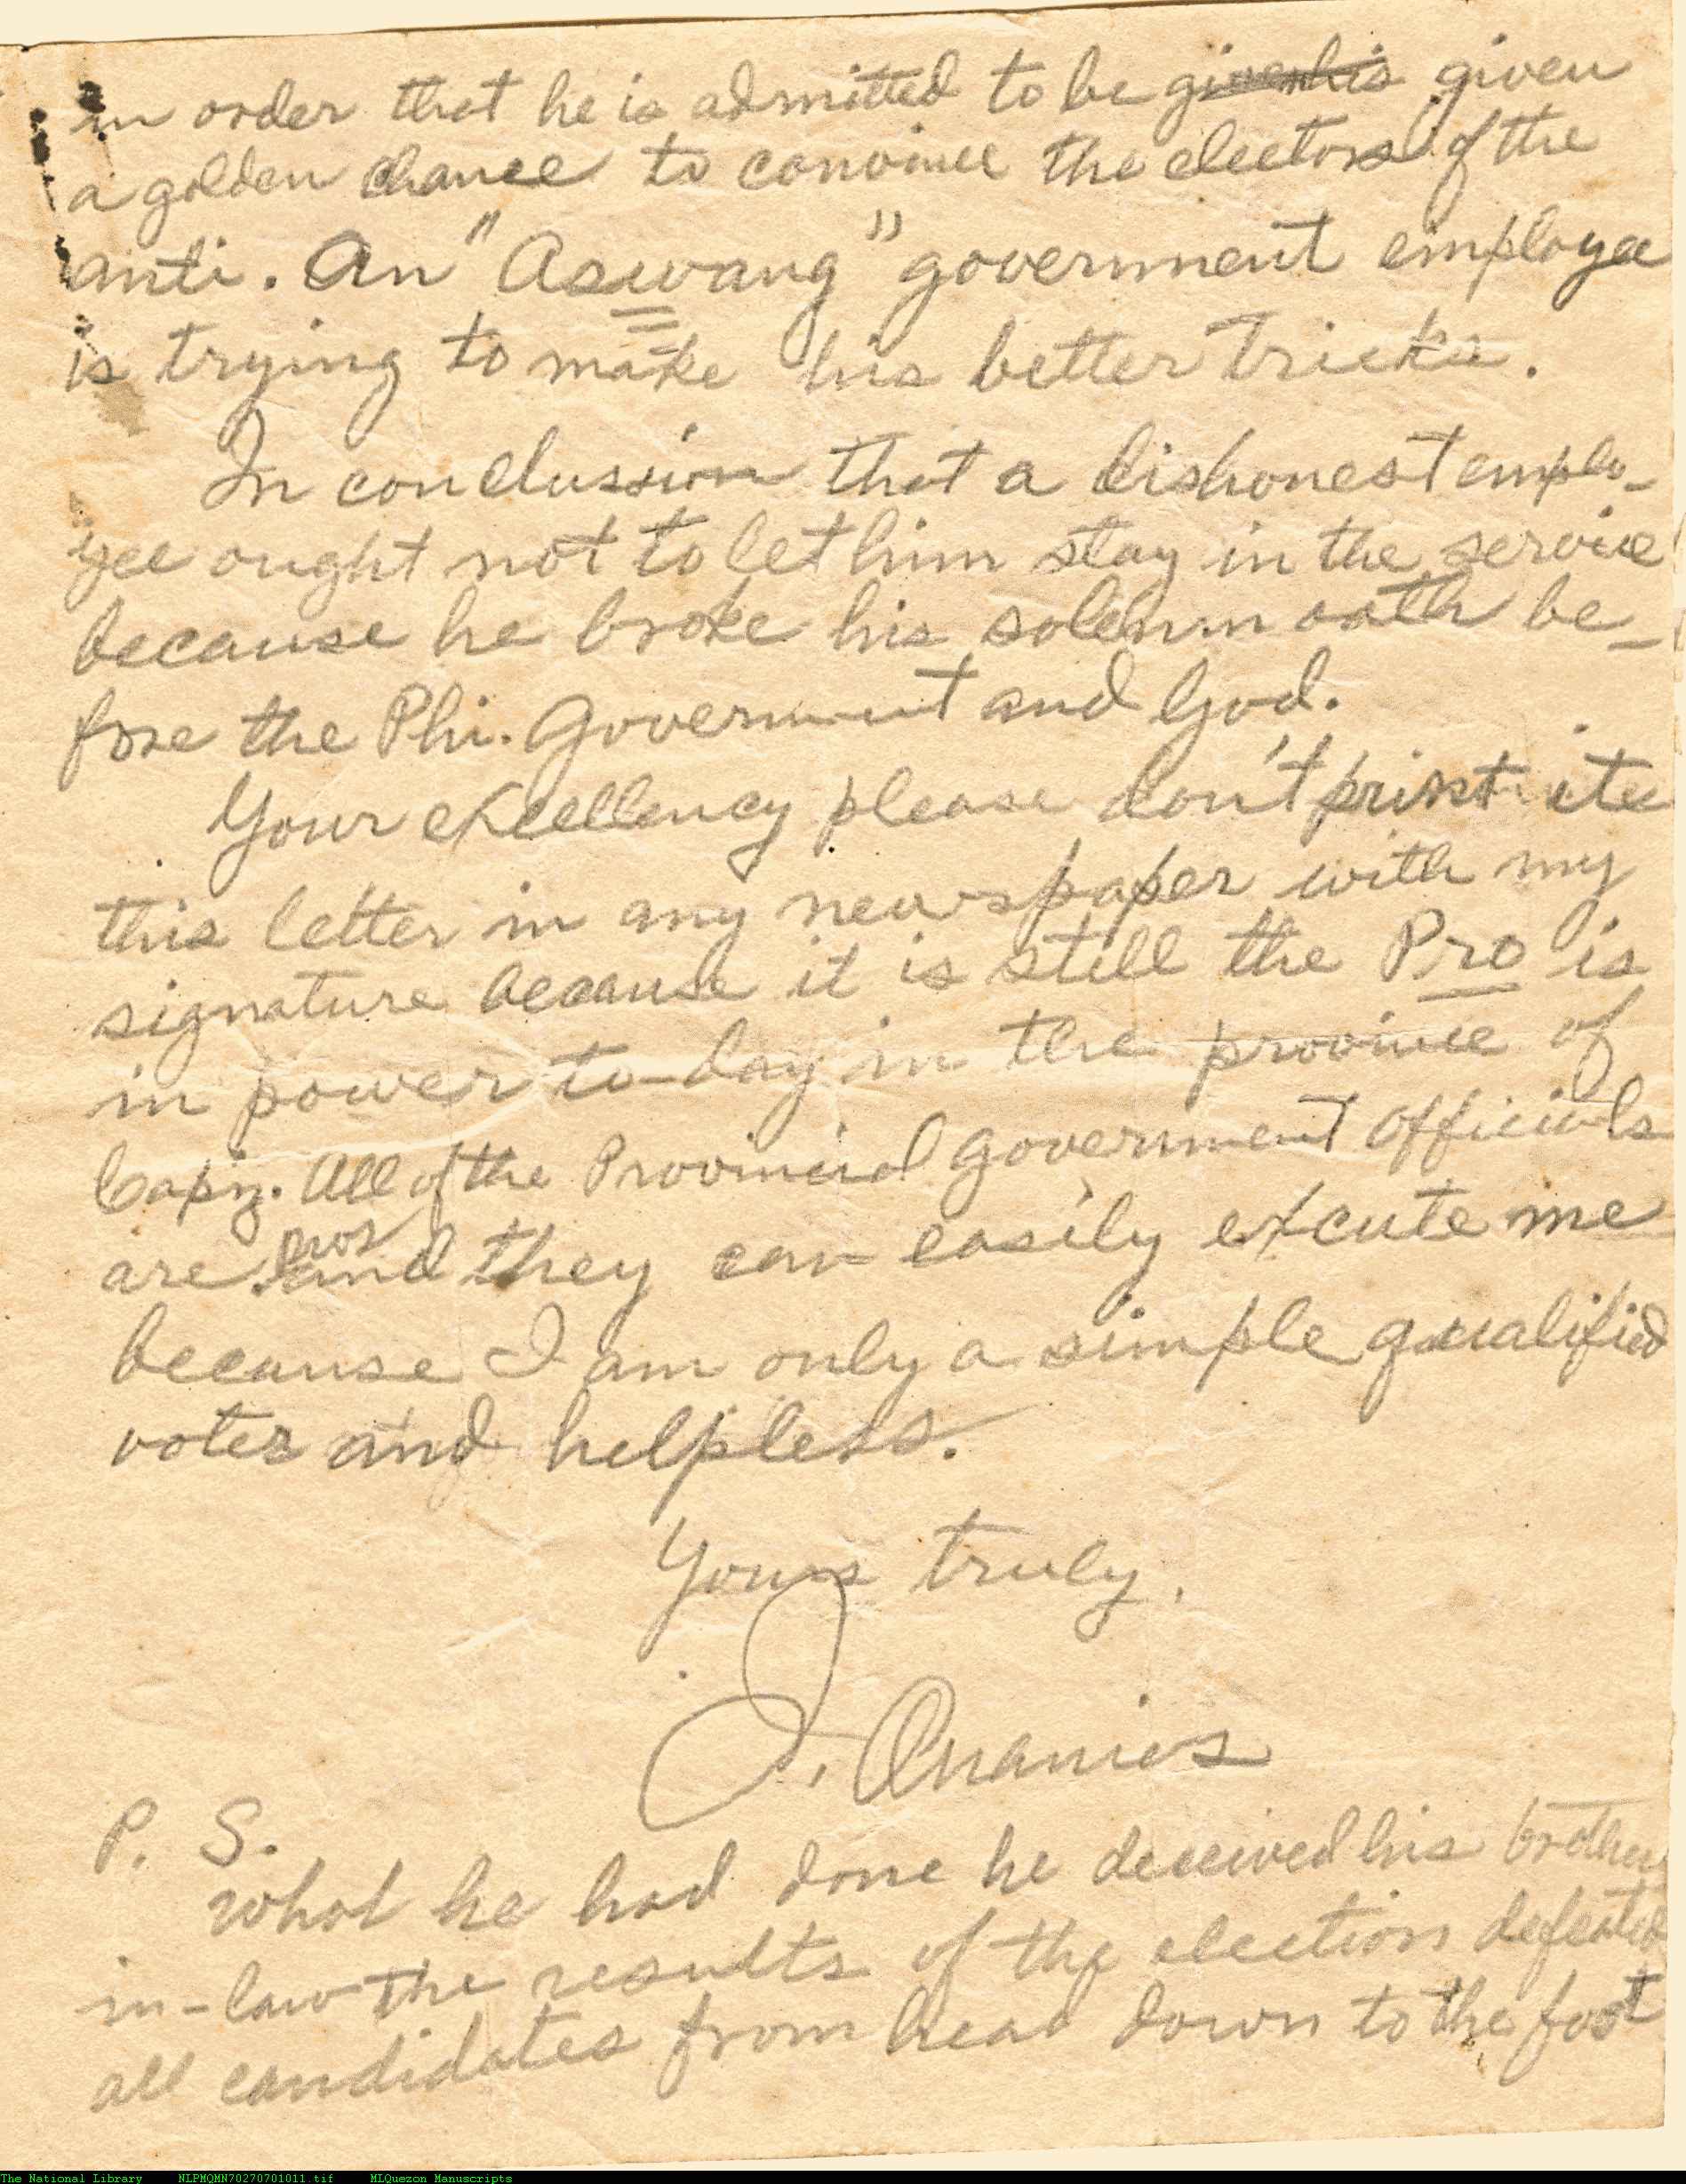 in order that he is admitted to be given his given
a golden chance to convince the electors of the
anti. An "Aswang" government employee
is trying to make his better tricks.
In conclussion that a dishonest emplo-
yee ought not to let him stay in the service
because he broke his solehmn oath be-
fore the Phi. Government and God.
Your excellency please don't print
this letter in any newspaper with my
signature because it is still the Pro is
in power to-day in the province of
Capiz. All of the Provincial government officials
are pros and they can easily excute me
because I am only a simple qualified
voter and helpless.
Yours truly,
J. Ananias
P. S.
What he had done he deceived his brother
in-law the results of the election defeated
all candidates from head down to the foot
The National Library NLPMQMN70270701011.tif MLQuezon Manuscripts